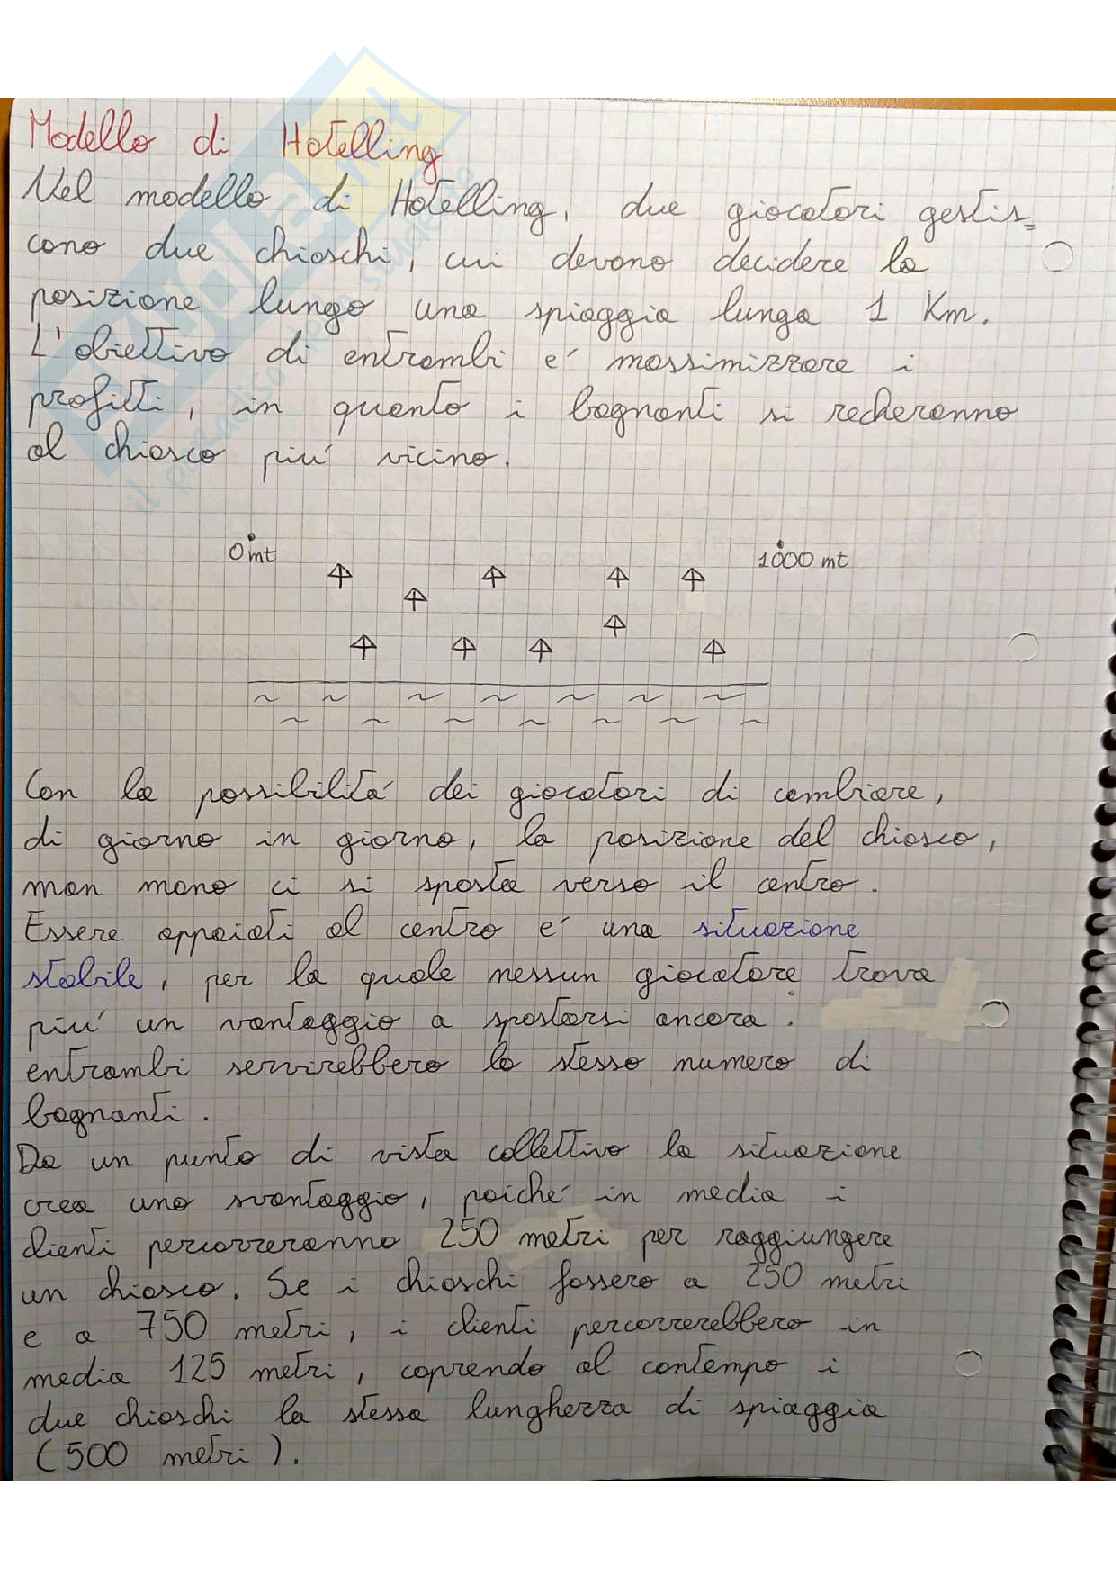 Modello di Hotelling
Nel modello di Hotelling, due giocatori gestis=
cono due chioschi, cui devono decidere la
posizione lungo una spiaggia lunga 1 Km.
L'obiettivo di entrambi e' massimizzare i
profitti, in quanto i bagnanti si recheranno
al chiosco piu' vicino.
0 mt
1000 mt
Con la possibilita' dei giocatori di cambiare,
di giorno in giorno, la posizione del chiosco,
man mano ci si sposta verso il centro.
Essere appaiati al centro e' una situazione
stabile, per la quale nessun giocatore trova
piu' un vantaggio a spostarsi ancora.
entrambi servirebbero lo stesso numero di
bagnanti.
Da un punto di vista collettivo la situazione
crea uno svantaggio, poiche' in media i
clienti percorreranno 250 metri per raggiungere
un chiosco. Se i chioschi fossero a 250 metri
e a 750 metri, i clienti percorrerebbero in
media 125 metri, coprendo al contempo i
due chioschi la stessa lunghezza di spiaggia
(500 metri).